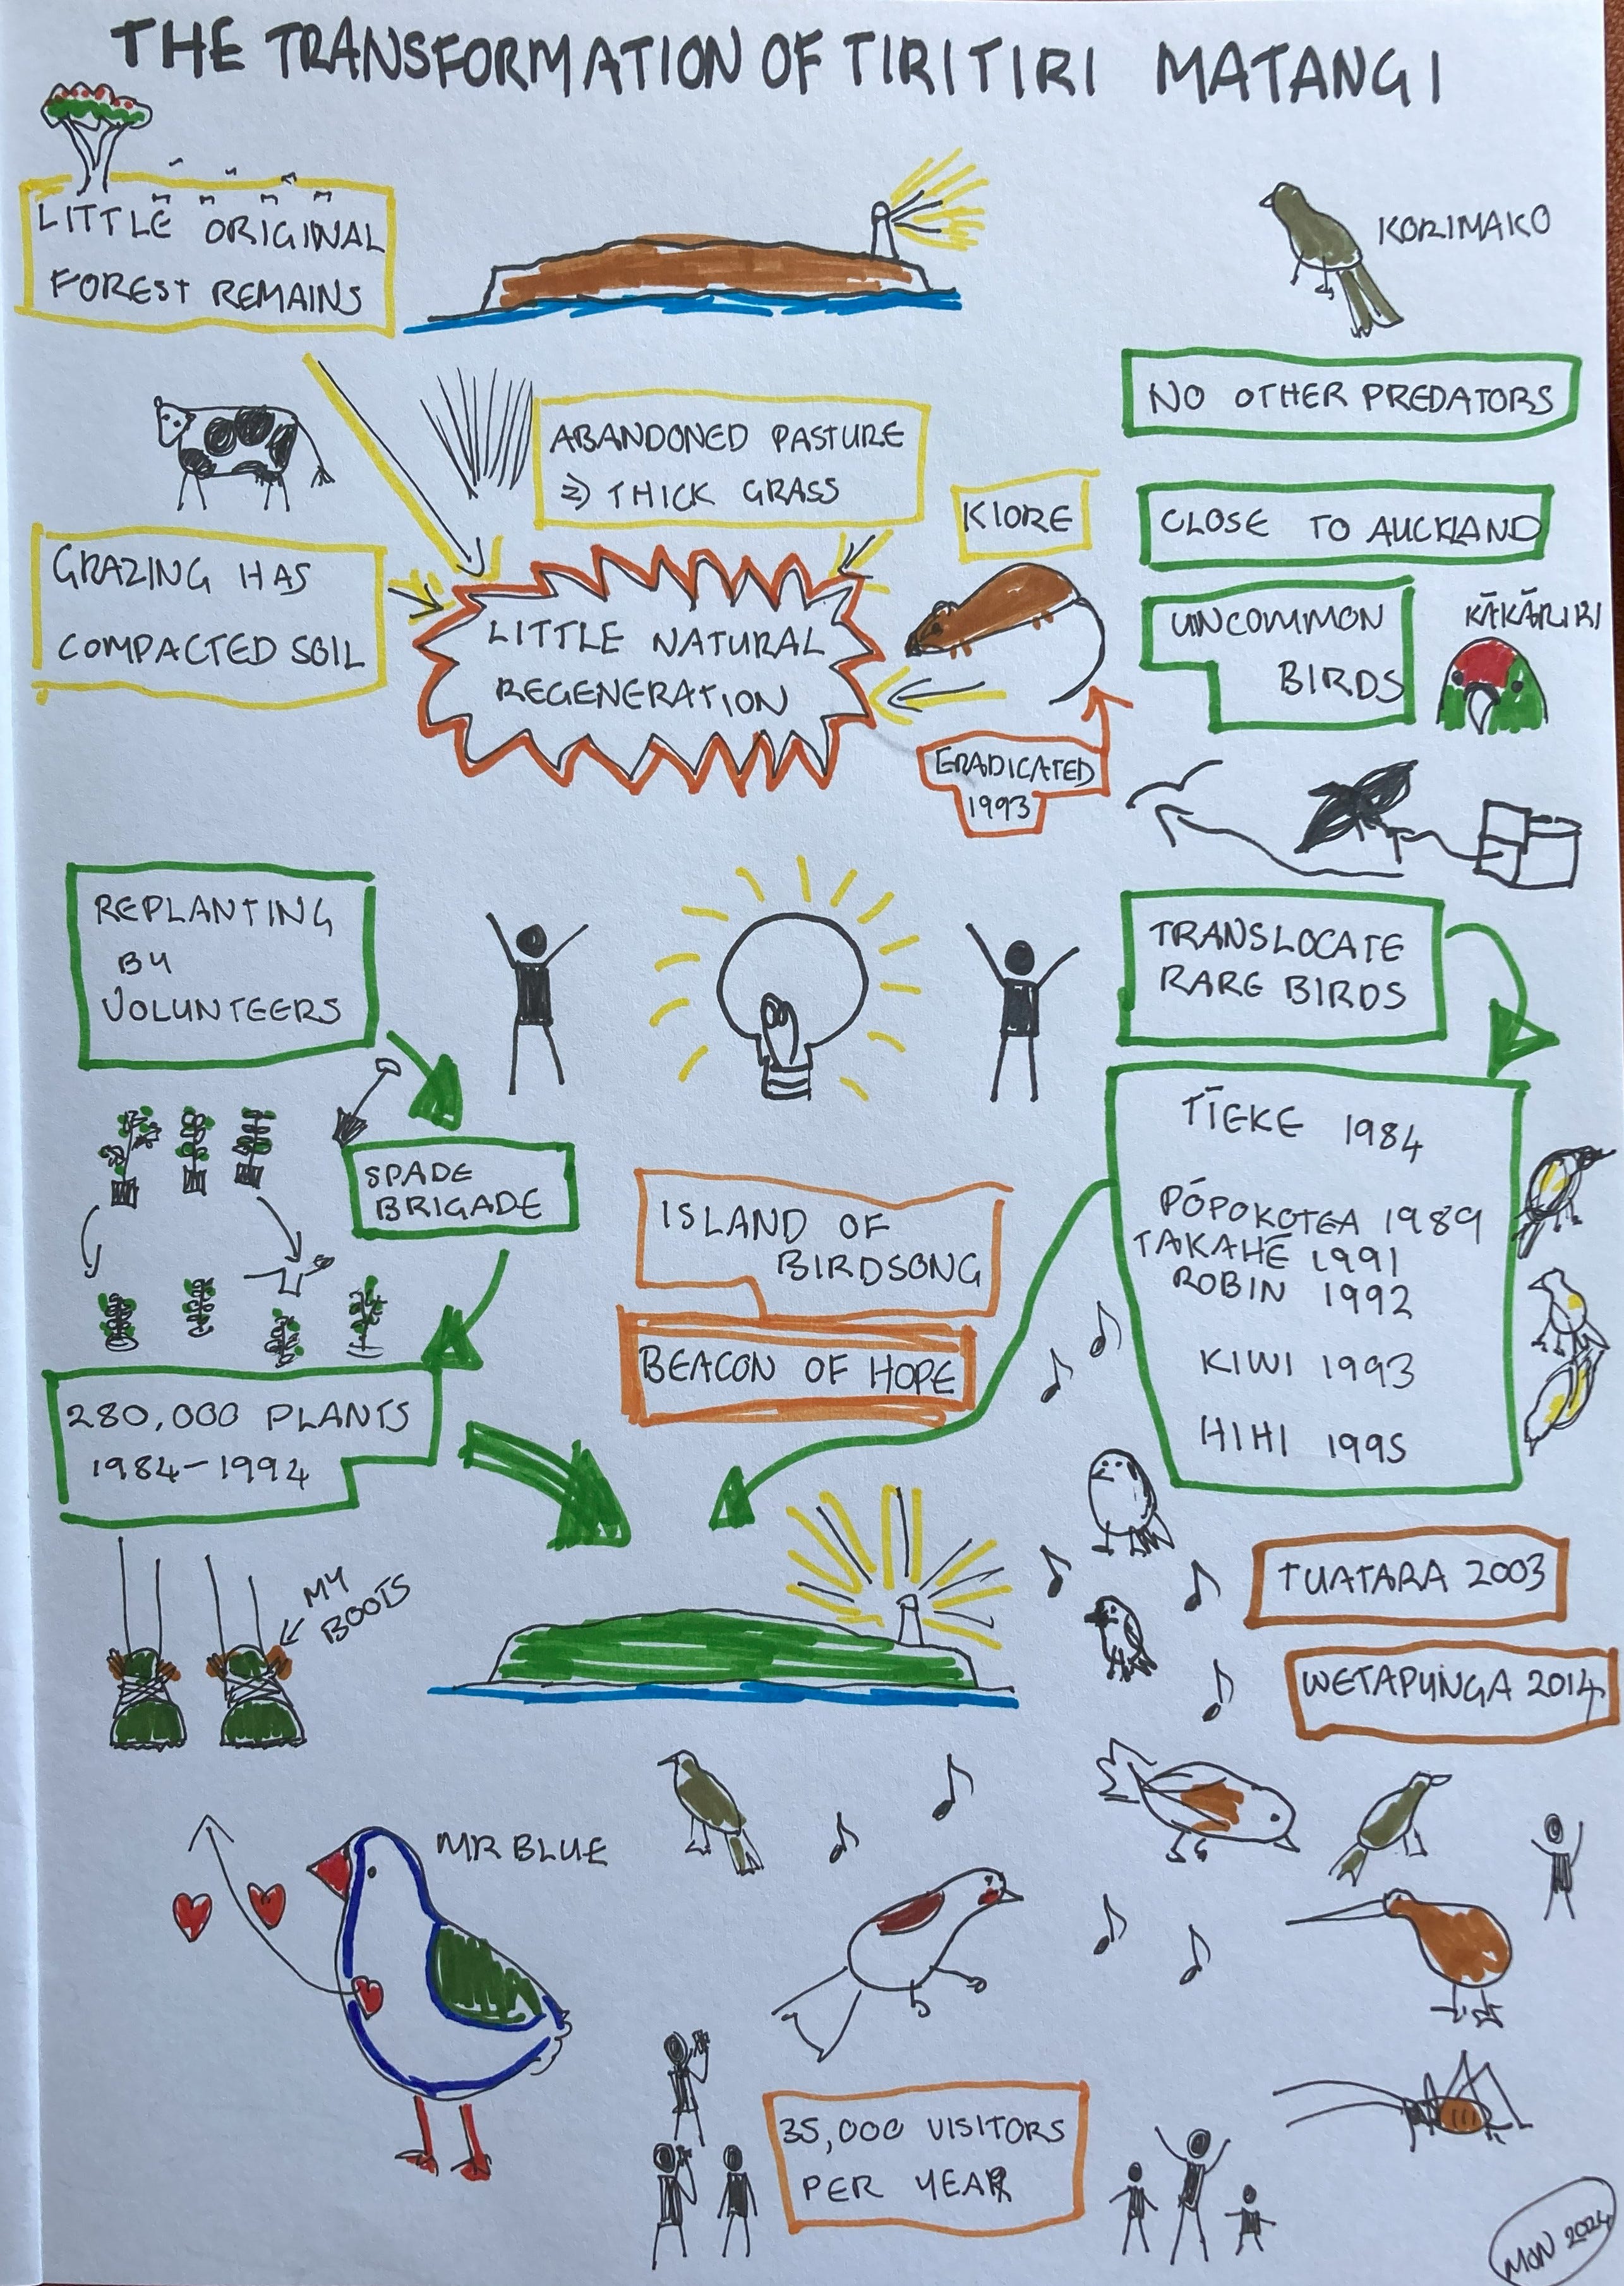 THE TRANSFORMATION OF TIRITIRI MATANGI
LITTLE ORIGINAL
FOREST REMAINS
KORIMAKO
NO OTHER PREDATORS
ABANDONED PASTURE
⇒ THICK GRASS
KIORE
CLOSE TO AUCKLAND
GRAZING HAS
COMPACTED SOIL
LITTLE NATURAL
REGENERATION
UNCOMMON
BIRDS
KĀKĀRIKI
ERADICATED
1993
REPLANTING
BY
VOLUNTEERS
TRANSLOCATE
RARE BIRDS
SPADE
BRIGADE
TĪEKE 1984
PŌPOKOTEA 1989
TAKAHĒ 1991
ROBIN 1992
KIWI 1993
HIHI 1995
ISLAND OF
BIRDSONG
BEACON OF HOPE
280,000 PLANTS
1984-1994
MY
BOOTS
TUATARA 2003
WETAPUNGA 2014
MR BLUE
35,000 VISITORS
PER YEAR
MON 2024